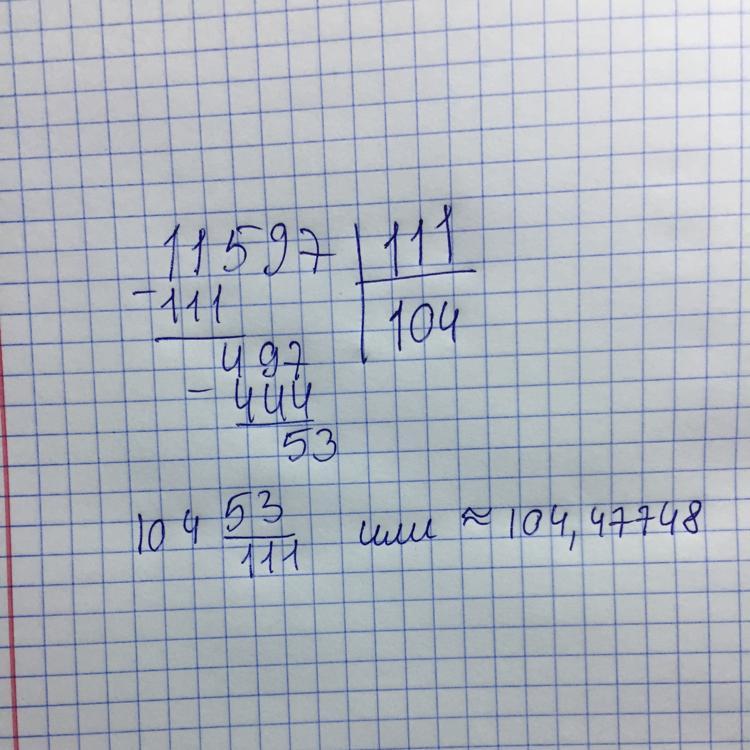 11597 | 111
- 111
104
497
- 444
53
104 53/111 или ≈ 104,47748